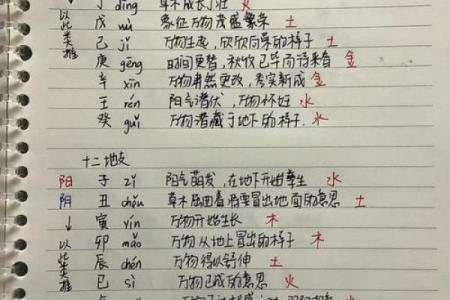 以此类推 丁 dīng 草木成长成壮 火
戊 wù 象征万物茂盛繁荣 土
己 jǐ 万物生起，欣欣向荣的样子 土
庚 gēng 时间更替，秋收已毕而待来春 金
辛 xīn 万物肃然更改，秀实新成 金
壬 rén 阳气潜伏，万物怀妊 水
癸 guǐ 万物潜藏于地下的样子. 水
十二地支
阳 子 zǐ 阳气萌发，在地下开始孳生 水
阴 丑 chǒu 草木屈曲着将要冒出地面的意思 土
↓ 寅 yín 万物开始生长 木
以此类推 卯 mǎo 万物从地上冒出的样子 木
辰 chén 万物得以舒伸 土
巳 sì 万物已成的意思 火